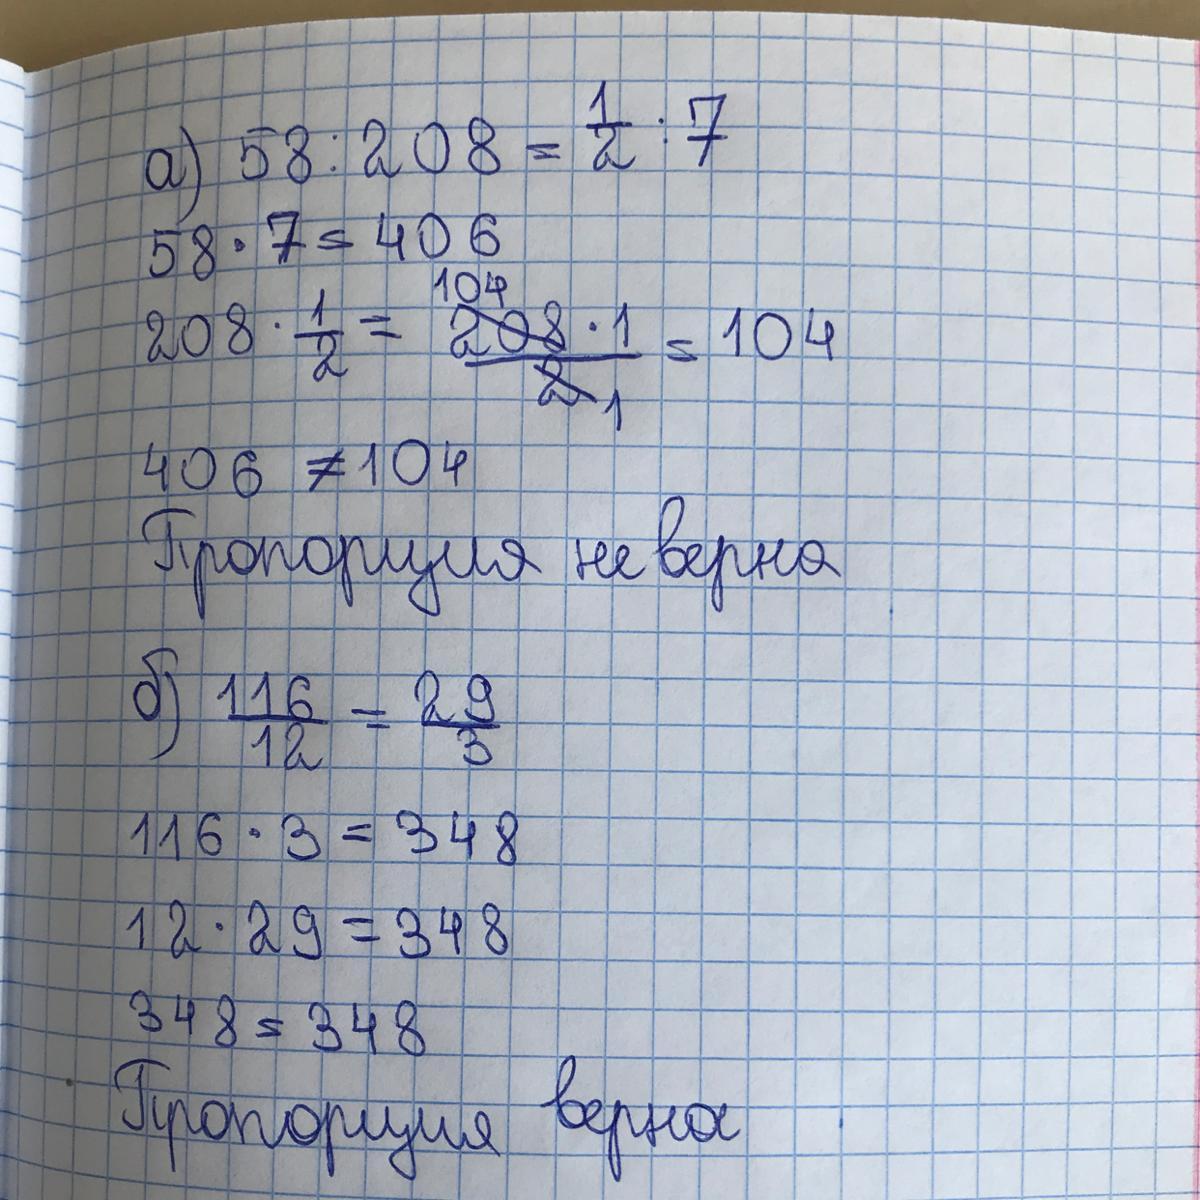 а) 58 : 208 = 1/2 : 7
58 · 7 = 406
208 · 1/2 = 104 208 · 1 / 2 1 = 104
406 ≠ 104
Пропорция не верна
б) 116/12 = 29/3
116 · 3 = 348
12 · 29 = 348
348 = 348
Пропорция верна